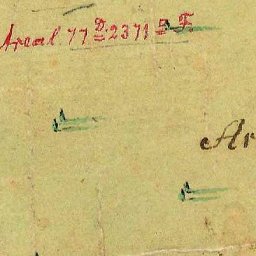 Areal 77 D. 2371 □ F
Ar